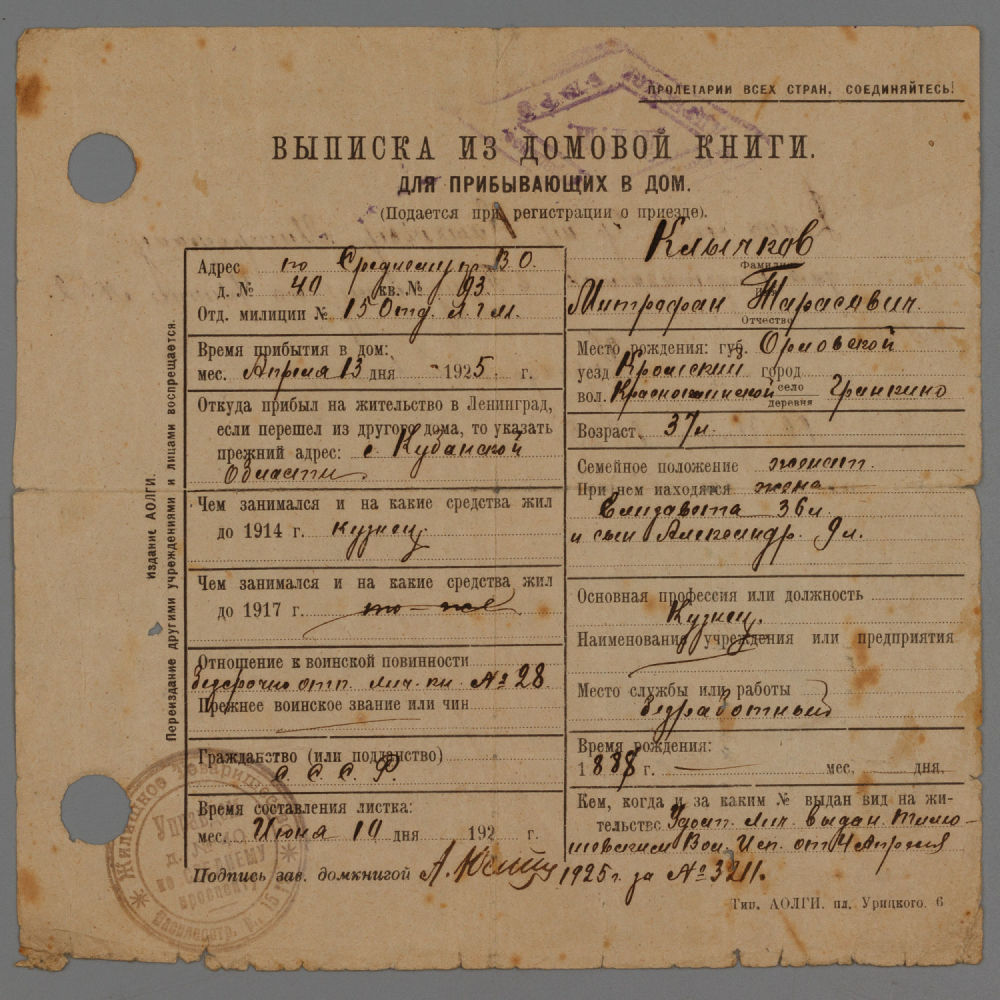 ПРОЛЕТАРИИ ВСЕХ СТРАН, СОЕДИНЯЙТЕСЬ!
ВЫПИСКА ИЗ ДОМОВОЙ КНИГИ.
ДЛЯ ПРИБЫВАЮЩИХ В ДОМ.
(Подается при регистрации о приезде).
Адрес по Среднему пр. В. О.
д. № 40 кв. № 93
Отд. милиции № 15 Отд. Л. г. м.
Время прибытия в дом:
мес. Апреля 13 дня 1925 г.
Откуда прибыл на жительство в Ленинград,
если перешел из другого дома, то указать
прежний адрес: с Кубанской
Области.
Чем занимался и на какие средства жил
до 1914 г. кузнец
Чем занимался и на какие средства жил
до 1917 г. то-же
Отношение к воинской повинности
отп. лич. кн. № 28
Прежнее воинское звание или чин
Гражданство (или подданство)
С. С. С. Р.
Время составления листка:
мес. Июня 10 дня 192 г.
Подпись зав. домкнигой
Клычков
Фамилия
Митрофан Тарасович.
Отчество
Место рождения: губ. Орловской
уезд Кромский город
вол. село
деревня Гранкино
Возраст 37 л.
Семейное положение женат.
При нем находятся жена
Елизавета 36 л.
и сын Александр. 9 л.
Основная профессия или должность
Кузнец.
Наименование учреждения или предприятия
Место службы или работы
Безработный
Время рождения:
1888 г. мес. дня.
Кем, когда и за каким № выдан вид на жи-
тельство Удост. Лич. выдан. Тимо-
шевским Вол. Исп. от 4 Апреля
1925 г. за № 3211.
Тип. АОЛГИ, пл. Урицкого. 6
Издание АОЛГИ.
Переиздание другими учреждениями и лицами воспрещается.
Жилищное Товарищество
Управл.
д. № 40
по СРЕДНЕМУ
проспекту